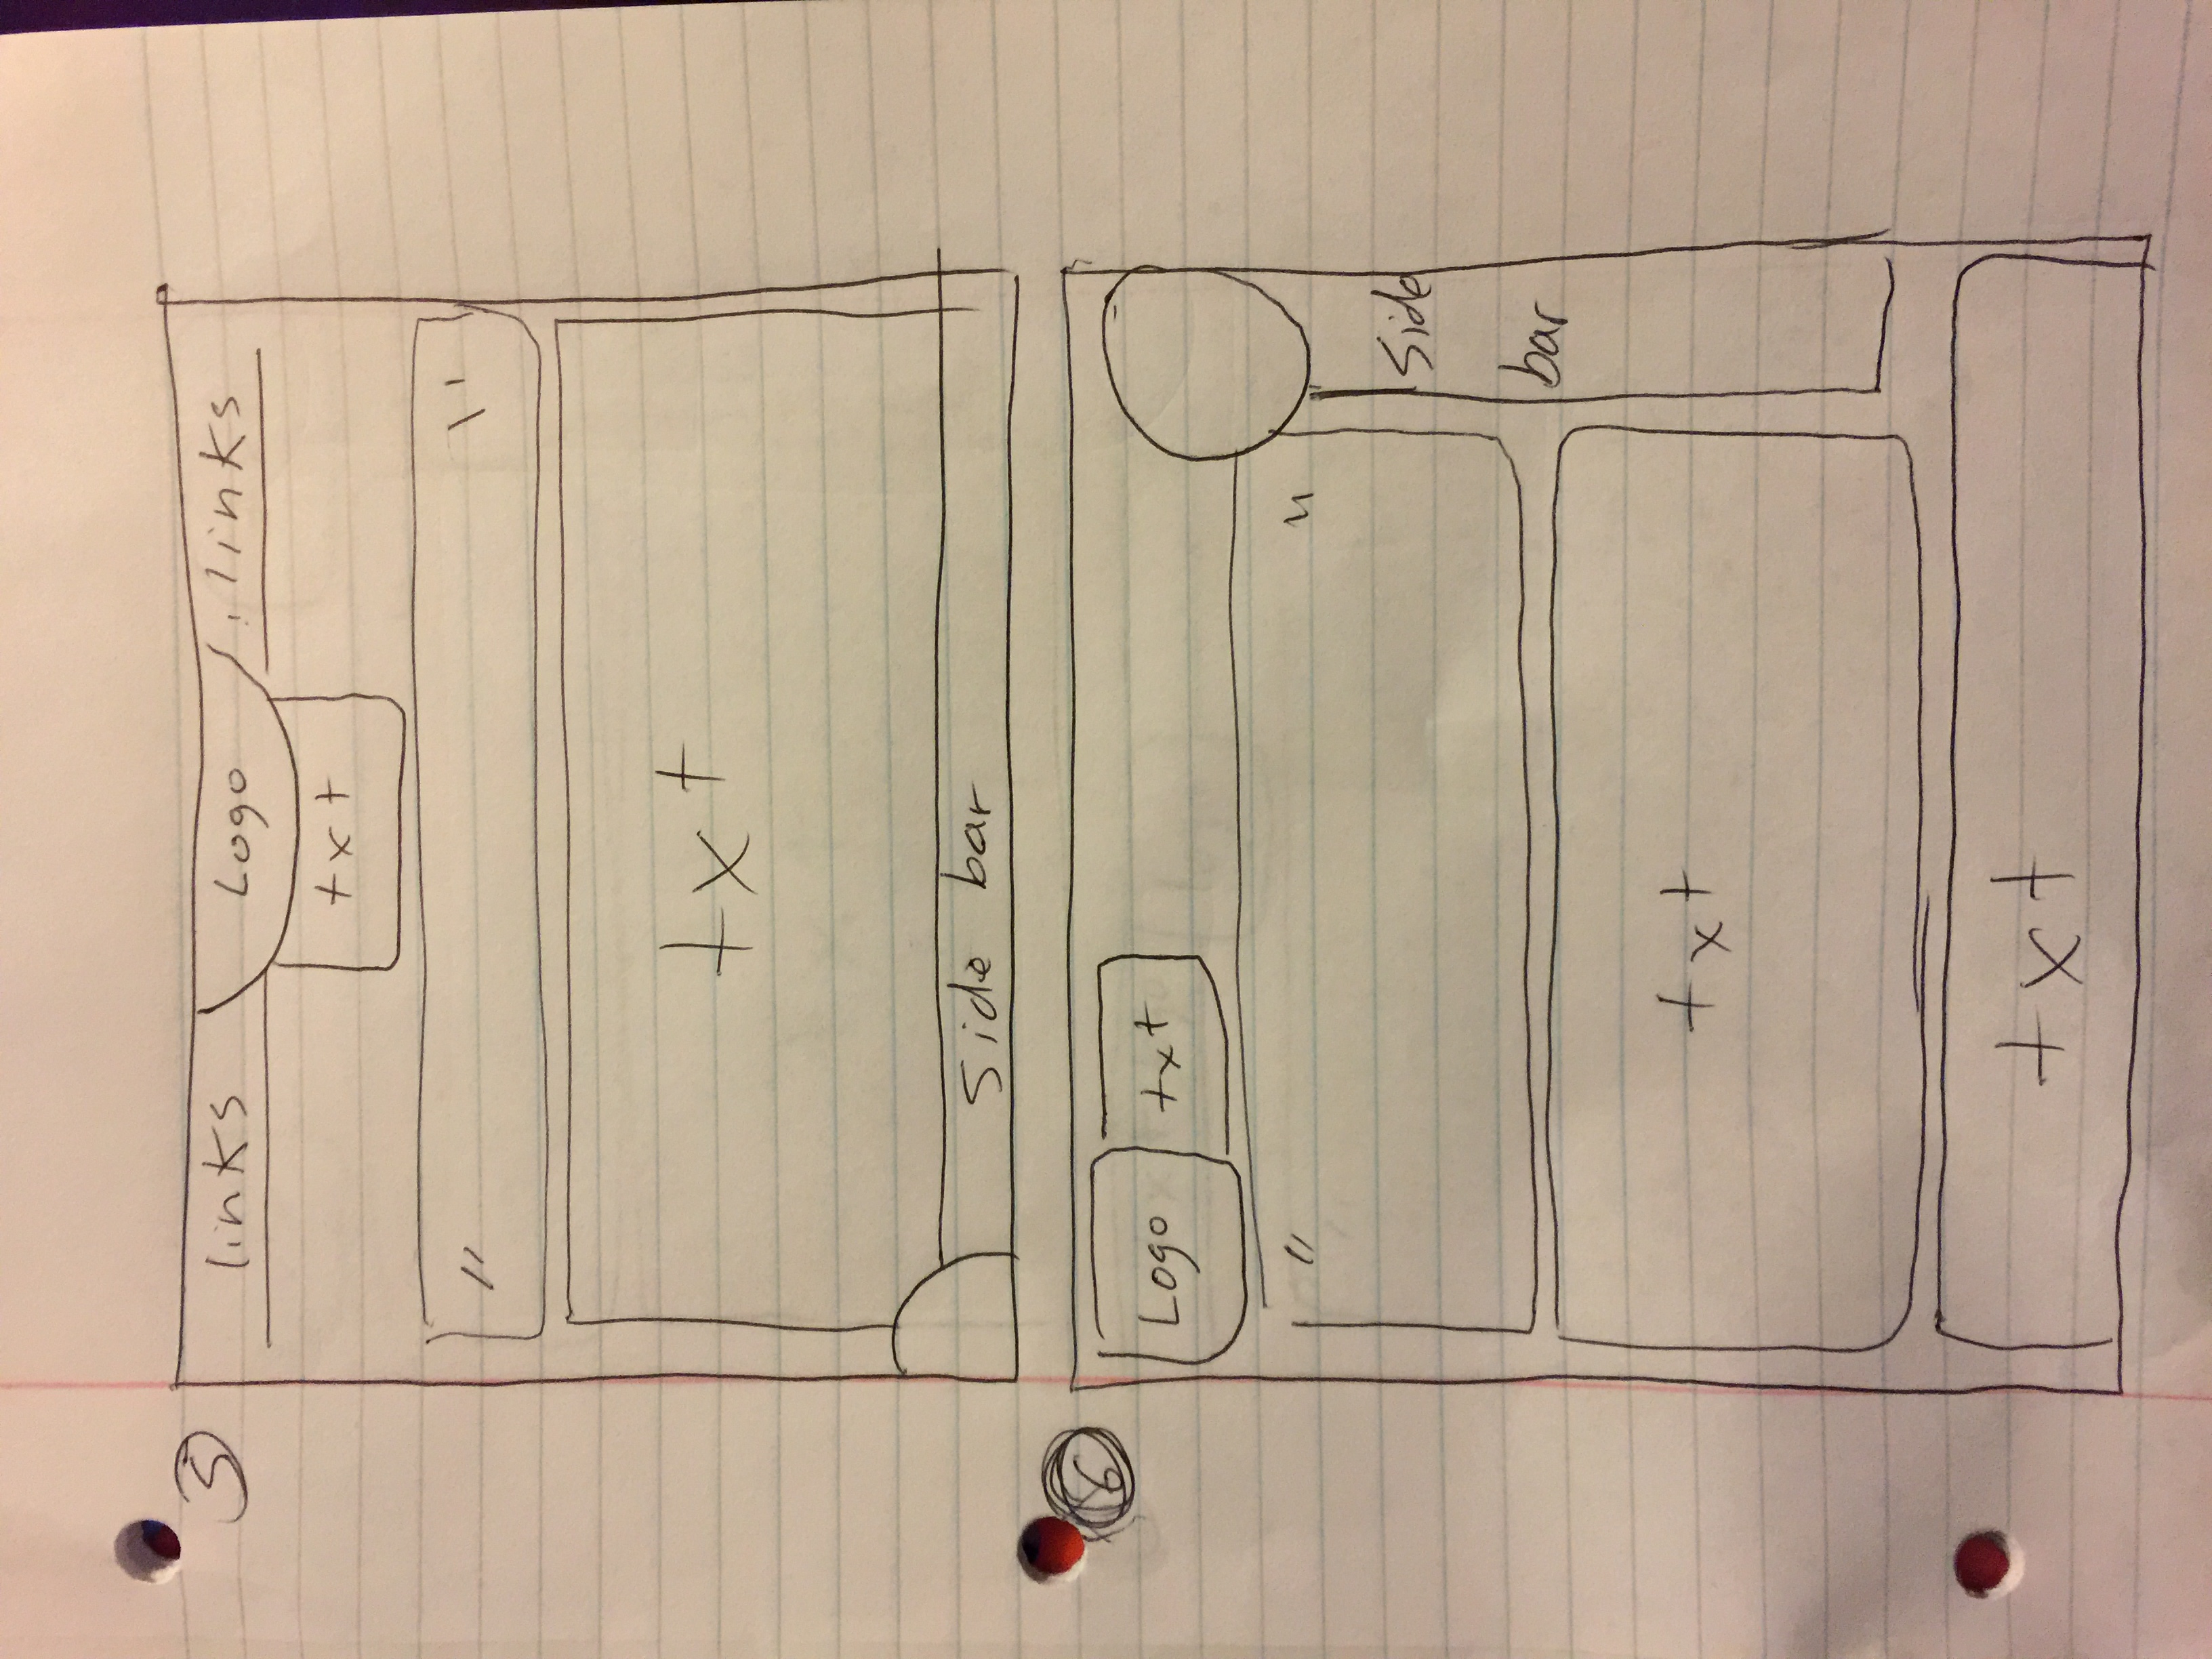 5
links Logo links
txt
" "
txt
Side bar
6
Logo txt
" "
Side
bar
txt
txt